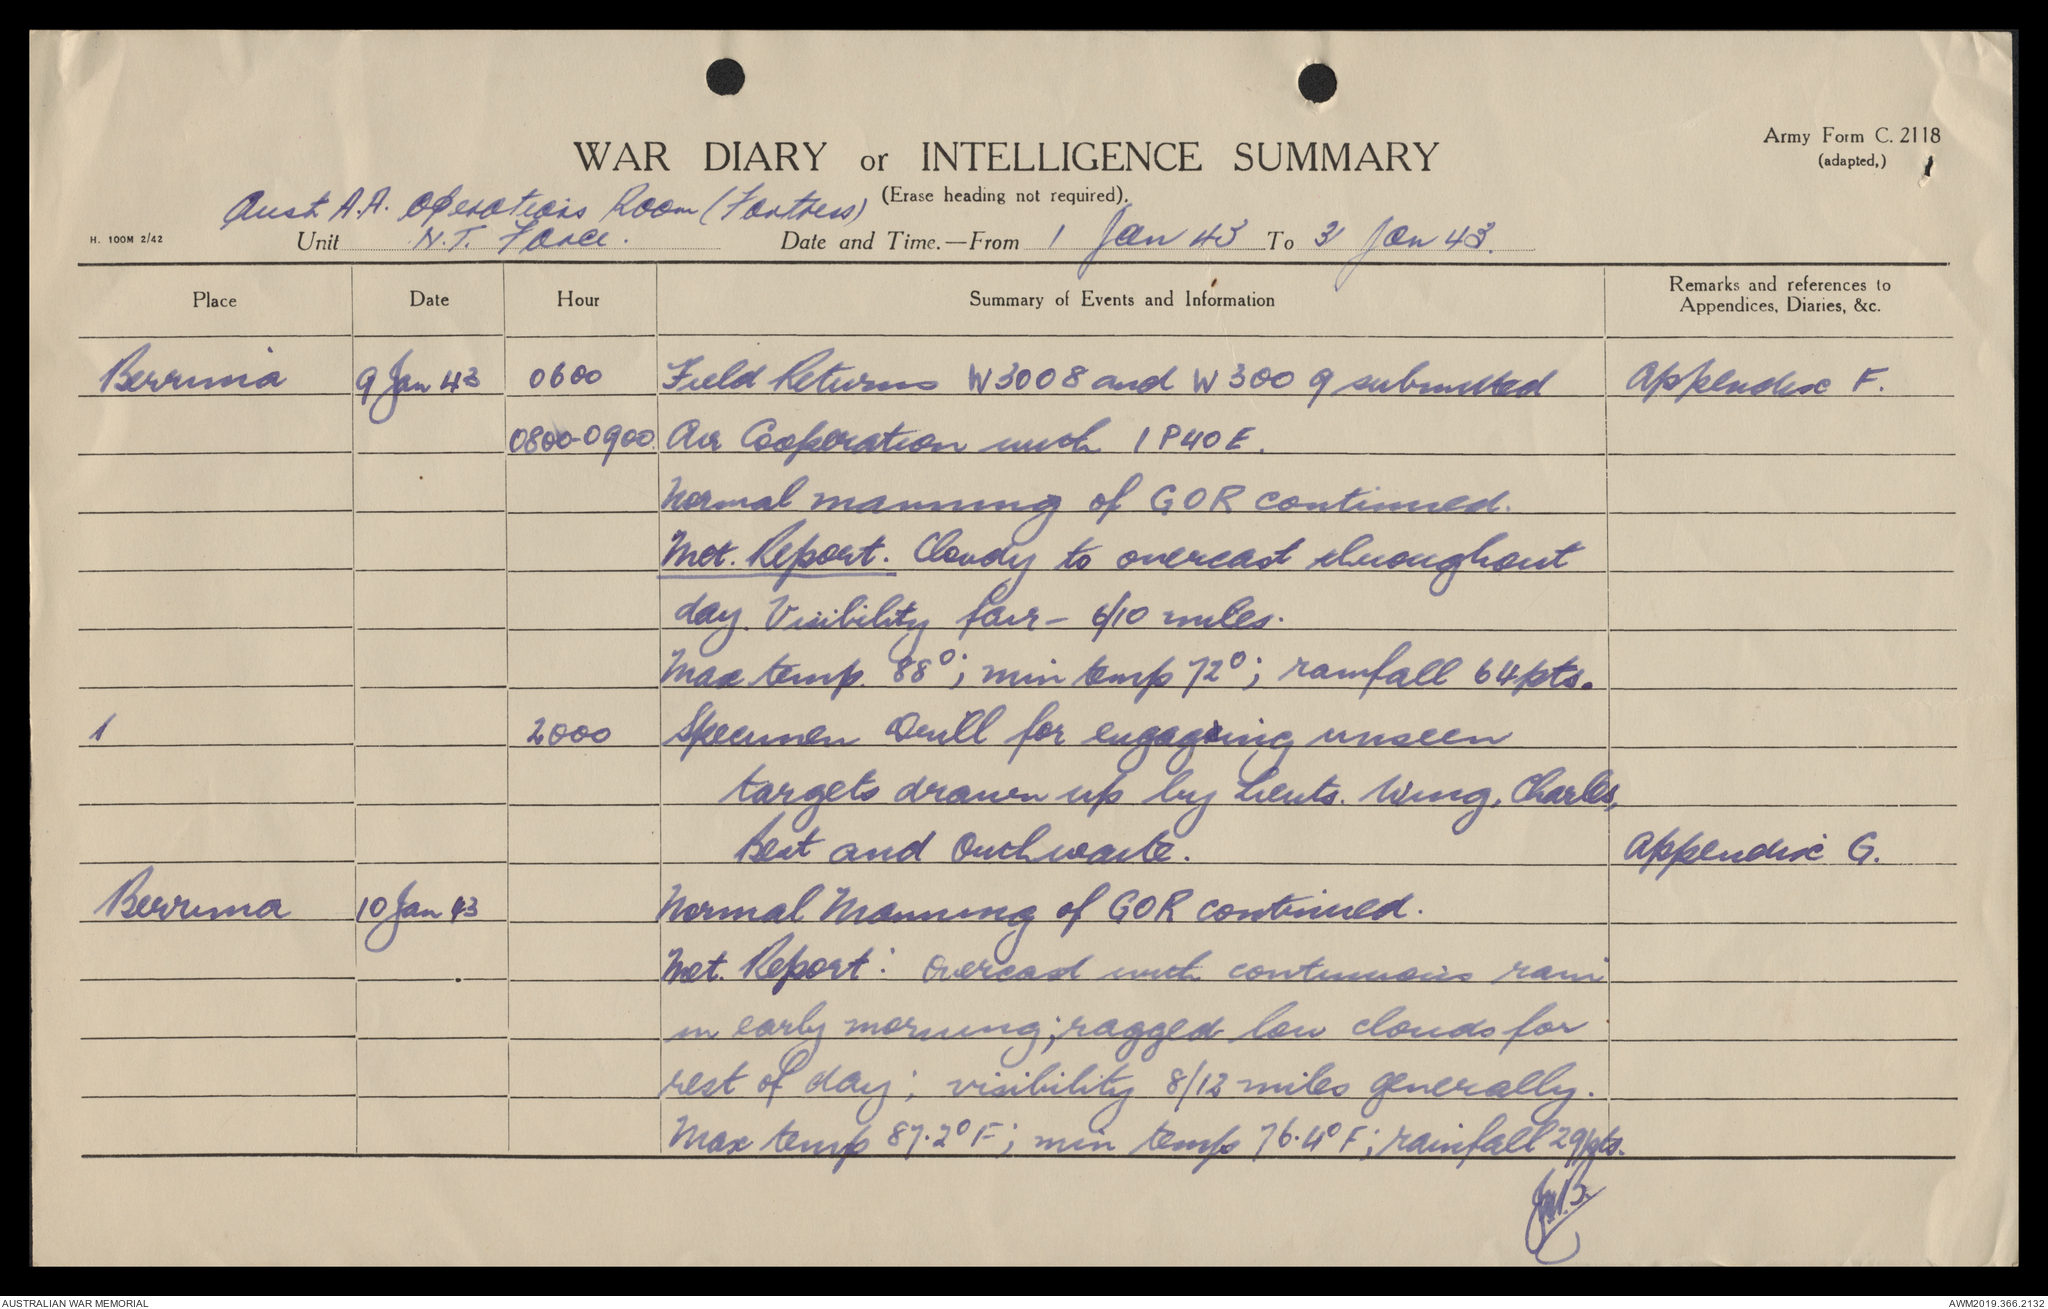 Army Form C. 2118
(adapted,)
1
WAR DIARY or INTELLIGENCE SUMMARY
(Erase heading not required).
Aust A.A. Operations Room (Fortress)
H. 100M 2/42
Unit N.T. Force. Date and Time.—From 1 Jan 43 To 31 Jan 43.
Place Date Hour Summary of Events and Information Remarks and references to Appendices, Diaries, &c.
Berrima 9 Jan 43 0600 Field Returns W3008 and W3009 submitted Appendix F.
0800-0900 Air Cooperation with 1 P40E.
Normal manning of GOR continued.
Met. Report. Cloudy to overcast throughout
day. Visibility fair - 6/10 miles.
Max temp. 88°; min temp 72°; rainfall 64pts.
1 2000 Specimen Drill for engaging unseen
targets drawn up by Lieuts. Wing, Charles,
Best and Outhwaite. Appendix G.
Berrima 10 Jan 43 Normal Manning of GOR continued.
Met. Report: Overcast with continuous rain
in early morning; ragged low clouds for
rest of day; visibility 8/12 miles generally.
Max temp 87.2°F; min temp 76.4°F; rainfall 29pts.
AUSTRALIAN WAR MEMORIAL
AWM2019.366.2132